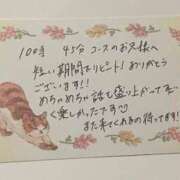 100分 45分 コースのお兄様へ
短い期間でリピート！ありがとう
ございます！！
めちゃめちゃ話も盛り上がって
く愛しかったです♡
また来てくれるの待ってます！！